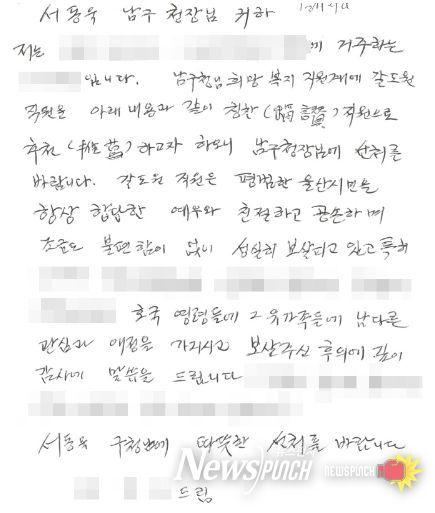 서동욱 남구청장님 귀하
저는 께 거주하는
입니다. 남구청님 희망 복지 지원계에 갈도원
직원을 아래 내용과 같이 칭찬 (稱讚) 직원으로
추천 (推薦) 하고자 하오니 남구청장님에 선처를
바랍니다. 갈도원 직원은 평범한 울산시민을
항상 합당한 예우와 친절하고 공손하며
조금도 불편함이 없이 성실히 보살피고 있고 특히
호국 영령들에 그 유가족들에 남다른
관심과 애정을 가지시고 보살펴주신 후의에 깊이
감사에 말씀을 드립니다
서동욱 구청님에 따뜻한 선처를 바랍니다
드림
뉴스펀치
NewsPunch
NEWSPUNCH